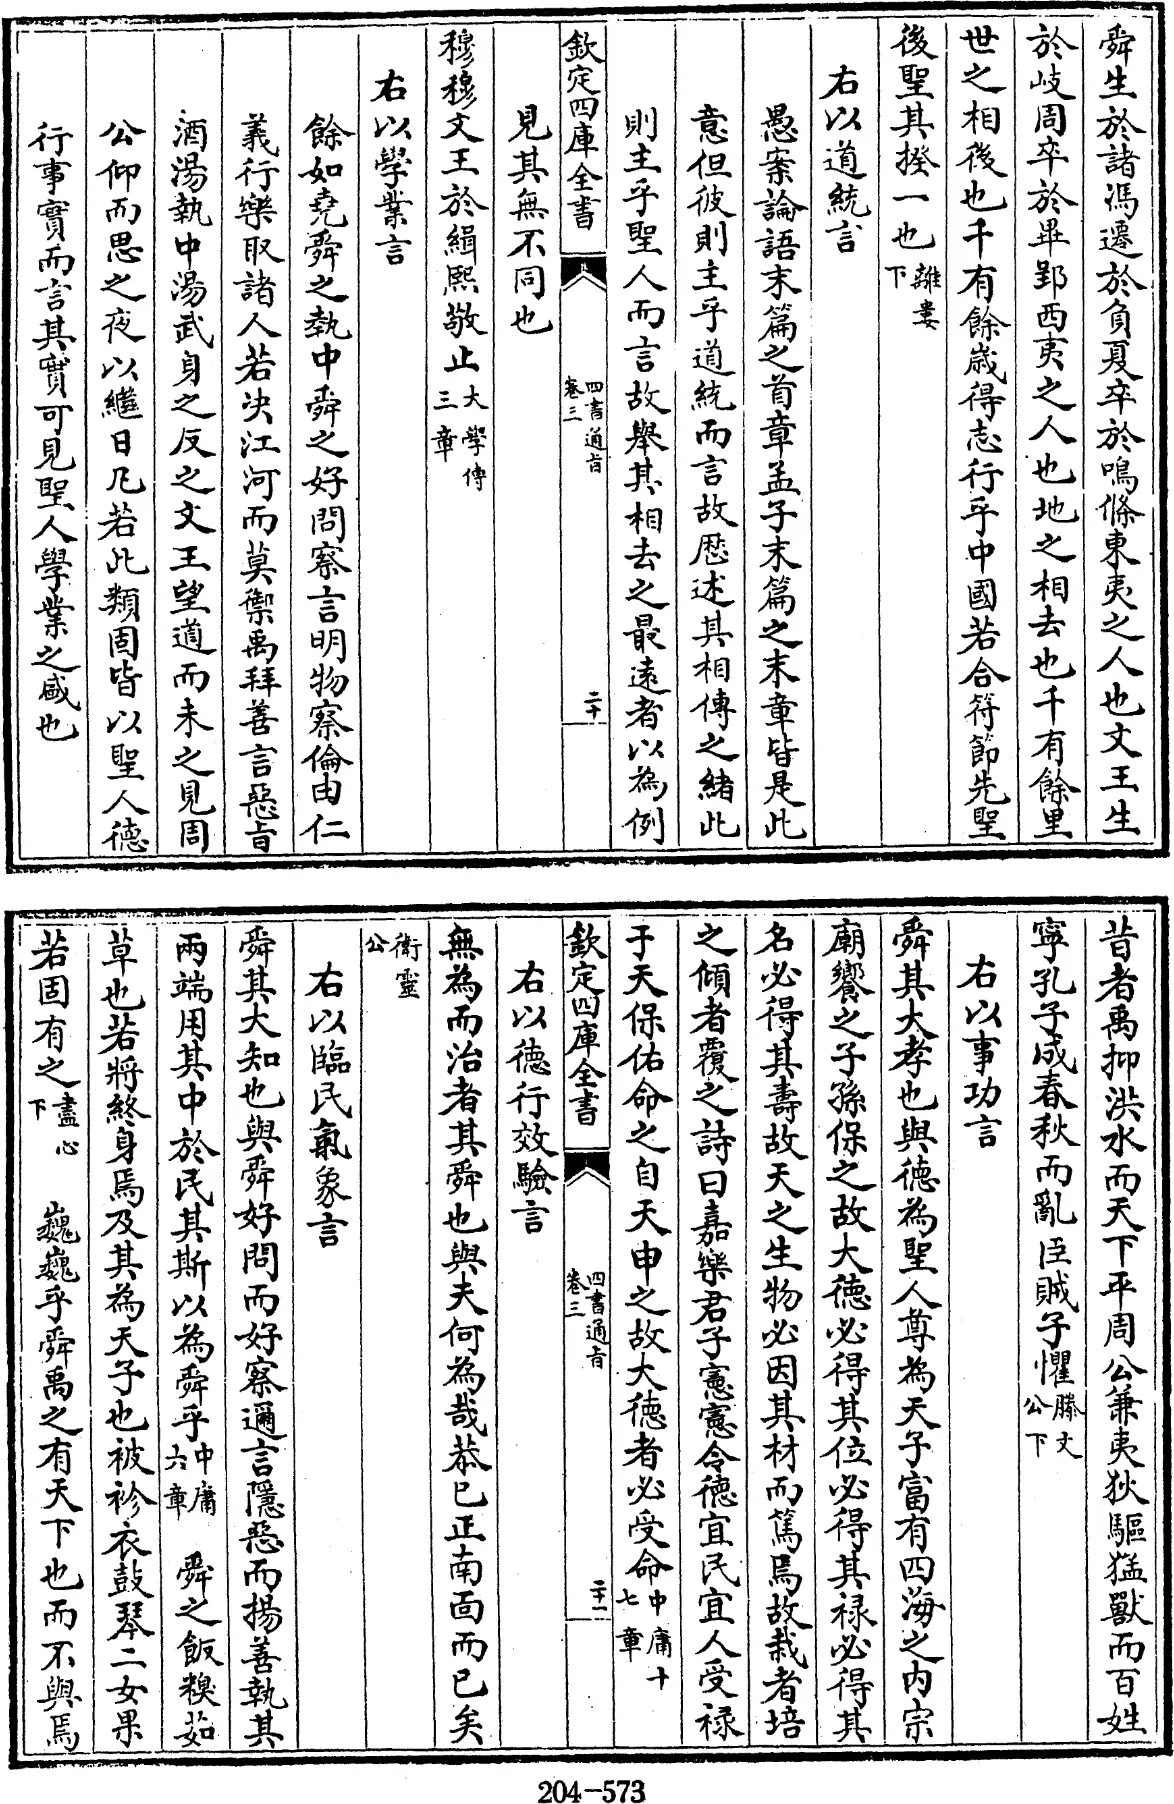 舜生於諸馮遷於負夏卒於鳴條東夷之人也文王生
於岐周卒於畢郢西夷之人也地之相去也千有餘里
世之相後也千有餘歲得志行乎中國若合符節先聖
後聖其揆一也離婁下
右以道統言
愚案論語末篇之首章孟子末篇之末章皆是此
意但彼則主乎道統而言故歴述其相傳之緒此
則主乎聖人而言故舉其相去之最遠者以為例
欽定四庫全書
四書通旨
卷三
二十
見其無不同也
穆穆文王於緝熙敬止大學傳三章
右以學業言
餘如堯舜之執中舜之好問察言明物察倫由仁
義行樂取諸人若決江河而莫禦禹拜善言惡旨
酒湯執中湯武身之反之文王望道而未之見周
公仰而思之夜以繼日凡若此類固皆以聖人德
行事實而言其實可見聖人學業之盛也
昔者禹抑洪水而天下平周公兼夷狄驅猛獸而百姓
寧孔子成春秋而亂臣賊子懼滕文公下
右以事功言
舜其大孝也與德為聖人尊為天子富有四海之内宗
廟饗之子孫保之故大德必得其位必得其禄必得其
名必得其壽故天之生物必因其材而篤焉故栽者培
之傾者覆之詩曰嘉樂君子憲憲令德宜民宜人受禄
于天保佑命之自天申之故大德者必受命中庸十七章
欽定四庫全書
四書通旨
卷三
二十一
右以德行效驗言
無為而治者其舜也與夫何為哉恭已正南面而已矣
衛靈公
右以臨民氣象言
舜其大知也與舜好問而好察邇言隱惡而揚善執其
兩端用其中於民其斯以為舜乎中庸六章 舜之飯糗茹
草也若將終身焉及其為天子也被袗衣鼓琴二女果
若固有之盡心下 巍巍乎舜禹之有天下也而不與焉
204-573